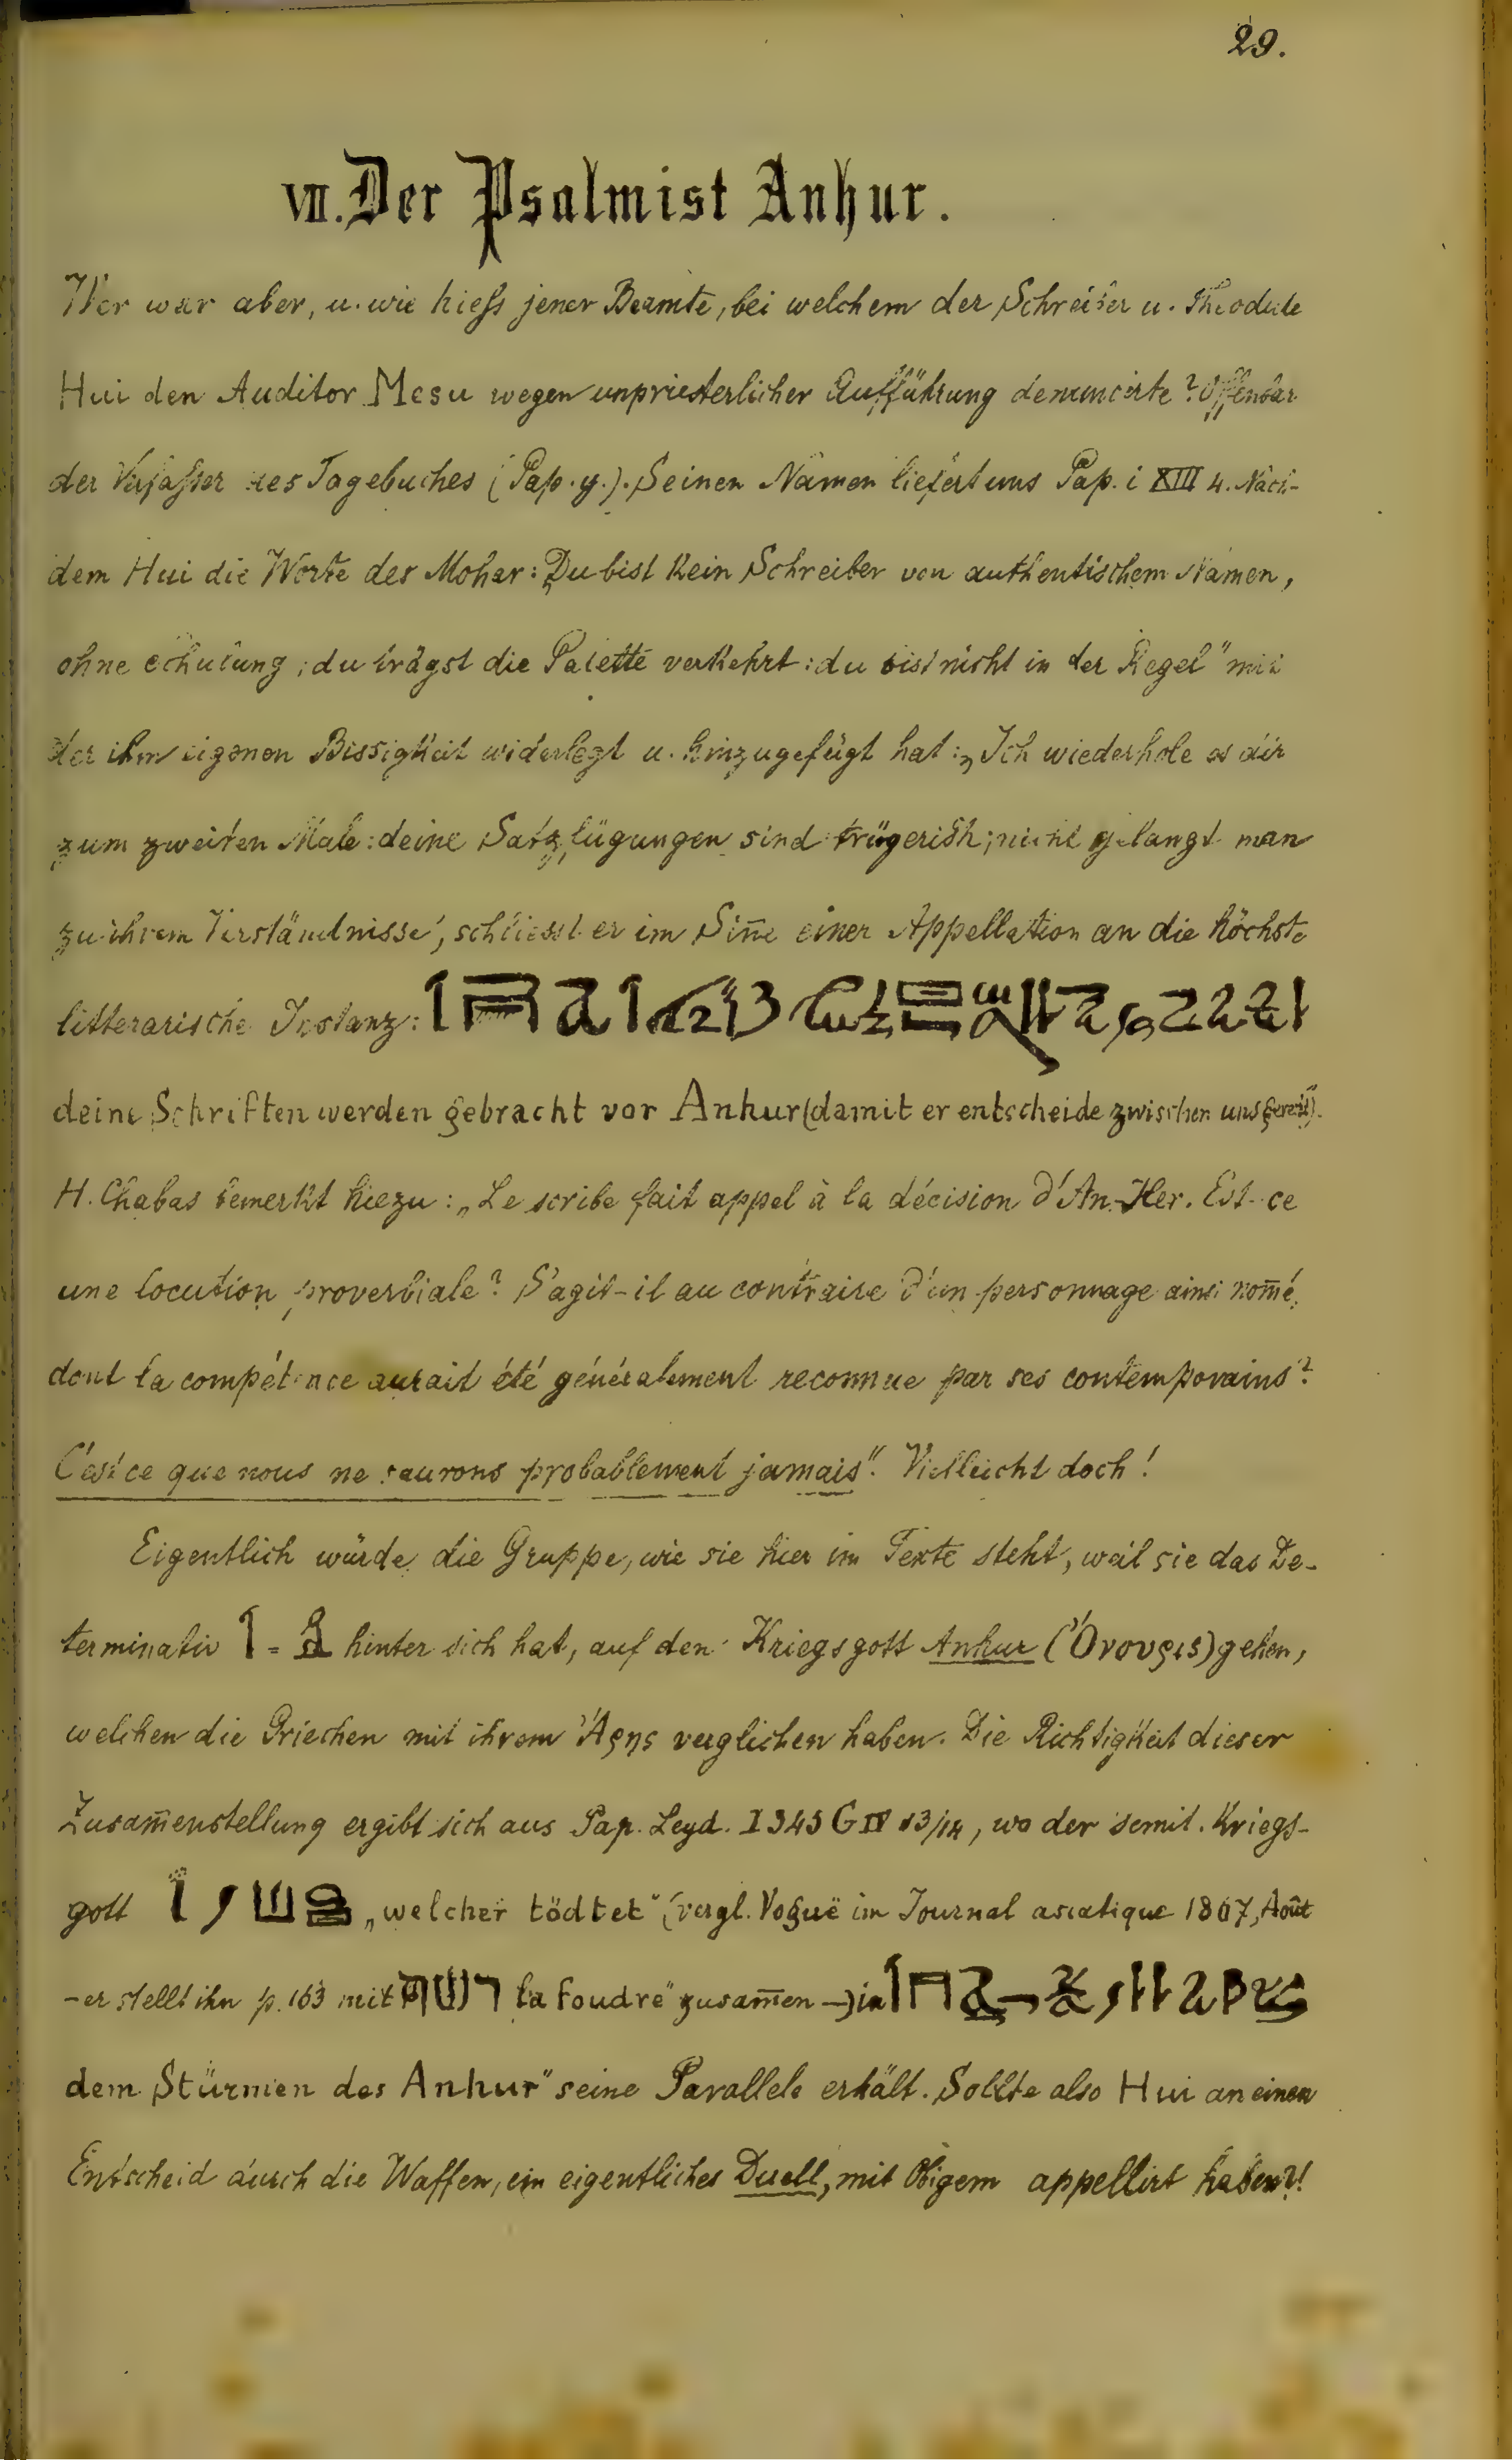 29.
VII. Der Psalmist Anhur.
Wer war aber, u. wie hieſs jener Beamte, bei welchem der Schreiber u. Theodule
Hui den Auditor Mesu wegen unpriesterlicher Aufführung denuncirte? Offenbar
der Verfaſser des Tagebuches (Pap. y.). Seinen Namen liefert uns Pap. i XIII 4. Nach-
dem Hui die Worte des Mohar: „Du bist kein Schreiber von authentischem Namen,
ohne Schulung; du trägst die Palette verkehrt: du bist nicht in der Regel" mit
der ihm eigenen Bissigkeit widerlegt u. hinzugefügt hat: „Ich wiederhole es dir
zum zweiten Male: deine Satzfügungen sind trügerisch; nicht gelangt man
zu ihrem Verständnisse", schliesst er im Sin̄e einer Appellation an die höchste
litterarische Instanz:
deine Schriften werden gebracht vor Anhur (damit er entscheide zwischen uns
H. Chabas bemerkt hiezu: „Le scribe fait appel à la décision d'An-Her. Est-ce
une locution proverbiale? S'agit-il au contraire d'un personnage ainsi nom̄é,
dont la compétence aurait été généralement reconnue par ses contemporains?
C'est ce que nous ne saurons probablement jamais". Vielleicht doch!
Eigentlich würde die Gruppe, wie sie hier im Texte steht, weil sie das De-
terminativ = hinter sich hat, auf den Kriegsgott Anhur (Ὀνουρις) gehen,
welchen die Griechen mit ihrem Ἄρης verglichen haben. Die Richtigkeit dieser
Zusam̄enstellung ergibt sich aus Pap. Leyd. I 343 G IV 13/14, wo der semit. Kriegs-
gott „welcher tödtet" (vergl. Vogué im Journal asiatique 1867, Août
- er stellt ihn p. 163 mit רשף la foudre" zusam̄en -) in
dem Stürmen des Anhur" seine Parallele erhält. Sollte also Hui an einen
Entscheid durch die Waffen, ein eigentliches Duell, mit Obigem appellirt haben?!